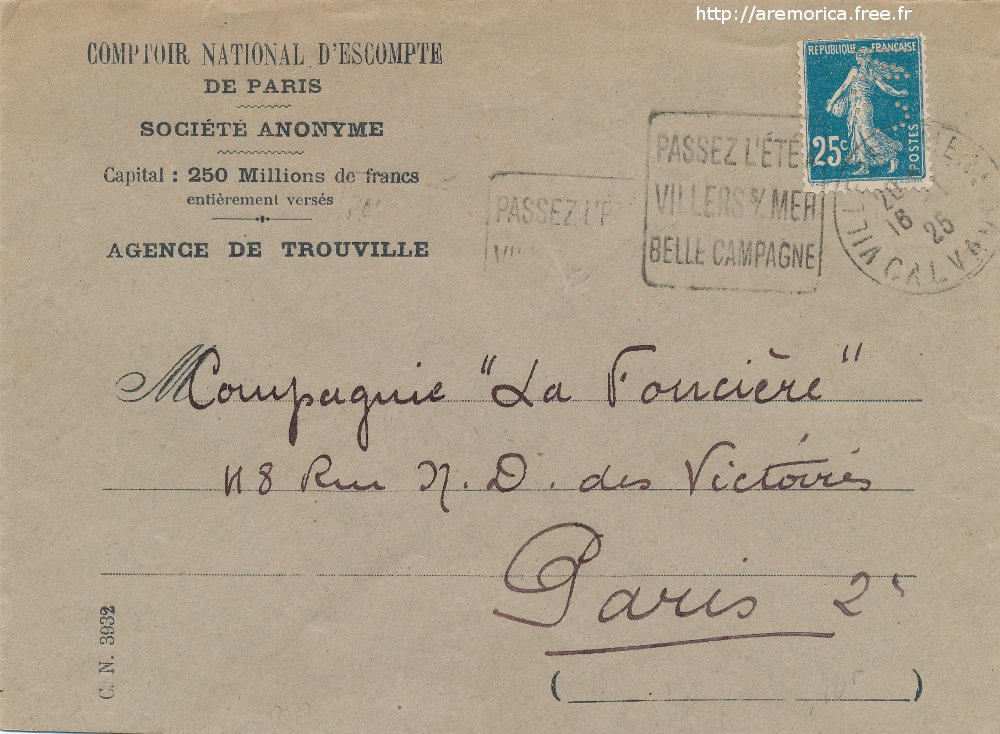 http://aremorica.free.fr
COMPTOIR NATIONAL D'ESCOMPTE
DE PARIS
SOCIÉTÉ ANONYME
Capital : 250 Millions de francs
entièrement versés
AGENCE DE TROUVILLE
PASSEZ L'É
PASSEZ L'ÉTÉ
VILLERS S/ MER
BELLE CAMPAGNE
REPUBLIQUE FRANÇAISE
25c
POSTES
20
18
25
CALVADOS
M Compagnie "La Foncière"
118 Rue N. D. des Victoires
Paris 2e
( )
C. N. 3932